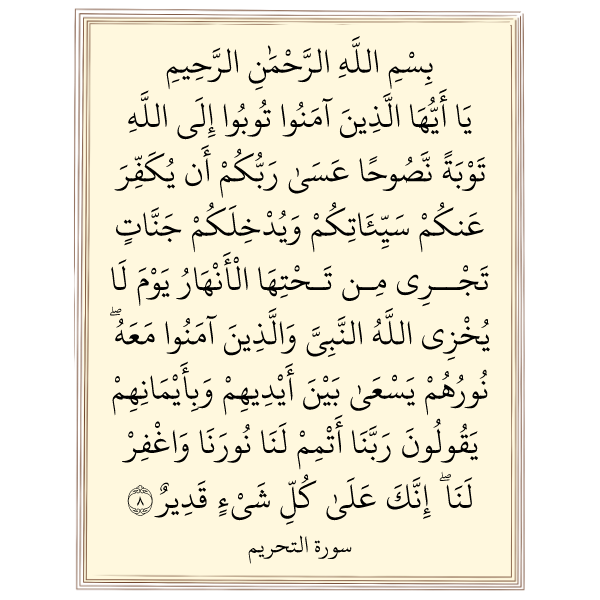 بِسْمِ اللَّهِ الرَّحْمَٰنِ الرَّحِيمِ
يَا أَيُّهَا الَّذِينَ آمَنُوا تُوبُوا إِلَى اللَّهِ
تَوْبَةً نَّصُوحًا عَسَىٰ رَبُّكُمْ أَن يُكَفِّرَ
عَنكُمْ سَيِّئَاتِكُمْ وَيُدْخِلَكُمْ جَنَّاتٍ
تَجْـــرِى مِـن تَـحْتِهَا الْأَنْهَارُ يَوْمَ لَا
يُخْزِى اللَّهُ النَّبِىَّ وَالَّذِينَ آمَنُوا مَعَهُ ۖ
نُورُهُمْ يَسْعَىٰ بَيْنَ أَيْدِيهِمْ وَبِأَيْمَانِهِمْ
يَقُولُونَ رَبَّنَا أَتْمِمْ لَنَا نُورَنَا وَاغْفِرْ
لَنَا ۖ إِنَّكَ عَلَىٰ كُلِّ شَىْءٍ قَدِيرٌ ۝٨
سورة التحريم